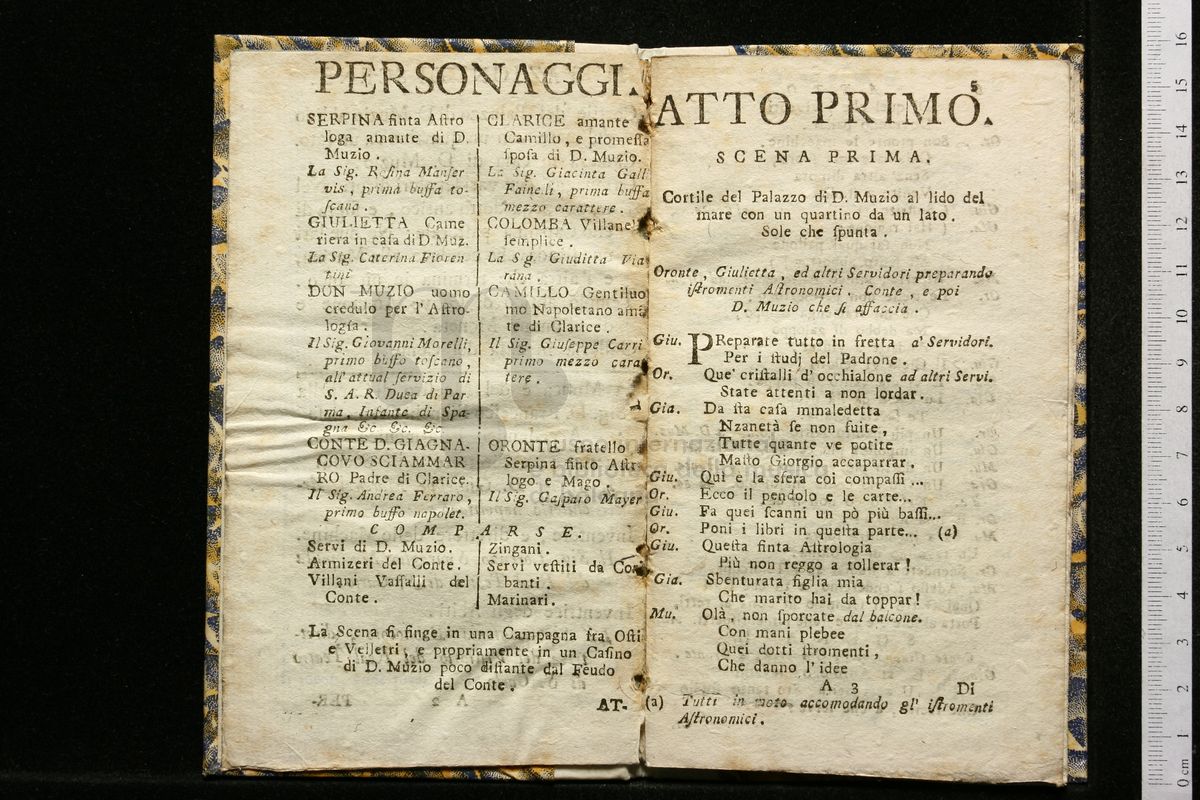 PERSONAGGI.
SERPINA finta Astro
loga amante di D.
Muzio.
La Sig. Rosina Manser
vis, prima buffa to-
scana.
GIULIETTA Came
riera in casa di D Muz.
La Sig. Caterina Fioren
tini
DON MUZIO uomo
credulo per l' Astro-
logia.
Il Sig. Giovanni Morelli,
primo buffo toscano,
all' attual servizio di
S. A. R. Duca di Par
ma, Infante di Spa-
gna &c &c. &c.
CONTE D. GIAGNA-
COVO SCIAMMAR
RO Padre di Clarice.
Il Sig. Andrea Ferraro,
primo buffo napolet.
CLARICE amante
Camillo, e promessa
sposa di D. Muzio.
La Sig. Giacinta Gall
Fainelli, prima buffa
mezzo carattere.
COLOMBA Villanel
semplice.
La Sg. Giuditta Via
rana.
CAMILLO Gentiluo
mo Napoletano ama
te di Clarice.
Il Sig. Giuseppe Carri
primo mezzo cara
tere.
ORONTE fratello
Serpina finto Astr
logo e Mago.
Il Sig. Gasparo Mayer
COMPARSE.
Servi di D. Muzio.
Armizeri del Conte.
Villani Vassalli del
Conte.
Zingani.
Servi vestiti da Cor
banti.
Marinari.
La Scena si finge in una Campagna fra Osti
e Velletri, e propriamente in un Casino
di D. Muzio poco distante dal Feudo
del Conte.
AT-
5
ATTO PRIMO.
SCENA PRIMA.
Cortile del Palazzo di D. Muzio al lido del
mare con un quartino da un lato.
Sole che spunta.
Oronte, Giulietta, ed altri Servidori preparando
istromenti Astronomici. Conte, e poi
D. Muzio che si affaccia.
Giu. PReparate tutto in fretta a' Servidori.
Per i studj del Padrone.
Or. Que' cristalli d' occhialone ad altri Servi.
State attenti a non lordar.
Gia. Da sta casa mmaledetta
Nzanetà se non fuite,
Tutte quante ve potite
Masto Giorgio accaparrar.
Giu. Qui e la sfera coi compassi ...
Or. Ecco il pendolo e le carte...
Giu. Fa quei scanni un pò più bassi...
Or. Poni i libri in questa parte... (a)
Giu. Questa finta Astrologia
Più non reggo a tollerar!
Gia. Sbenturata figlia mia
Che marito hai da toppar!
Mu. Olà, non sporcate dal balcone.
Con mani plebee
Quei dotti stromenti,
Che danno l' idee
A 3 Di
(a) Tutti in moto accomodando gl' istromenti
Astronomici.
0 cm 1 2 3 4 5 6 7 8 9 10 11 12 13 14 15 16